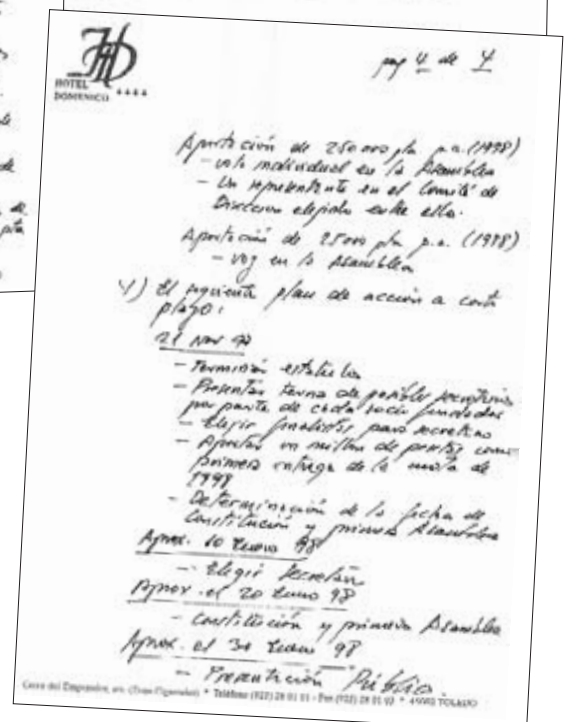 HOTEL
DOMENICO ****
pag 4 de 4
Aportación de 250.000 pta p.a. (1998)
- voto individual en la Asamblea
- Un representante en el Comité de
Dirección elegido entre ellos.
Aportación de 25.000 pta p.a. (1998)
- voz en la Asamblea
4) El siguiente plan de acción a corto
plazo:
21 Nov 97
- Terminar estatutos
- Presentar terna de posibles secretarios
por parte de cada socio fundador
- Elegir finalistas para secretario
- Aportar un millón de pesetas como
primera entrega de la cuota de
1998
- Determinación de la fecha de
Constitución y primera Asamblea
Aprox. 10 Enero 98
- Elegir Secretario
Aprox. el 20 Enero 98
- Constitución y primera Asamblea
Aprox. el 30 Enero 98
- Presentación Pública.
Cerro del Emperador, s/n • Teléfono (925) 28 01 01 - Fax (925) 28 01 03 • 45002 TOLEDO